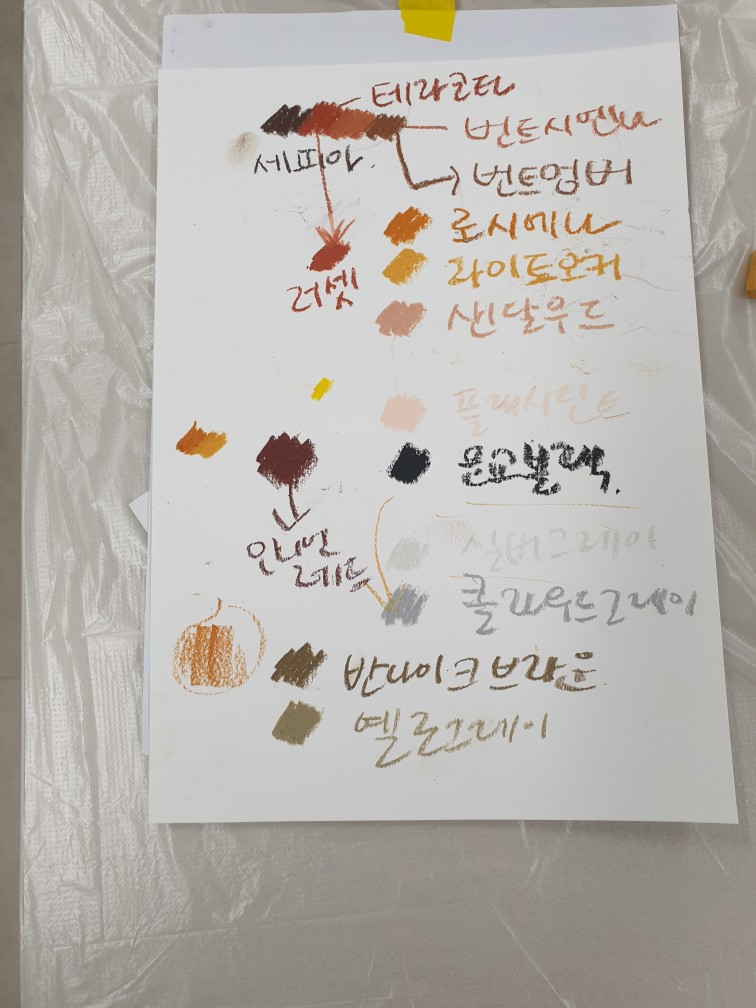 테라코타
번트시엔나
세피아.
번트엄버
로시에나
러셋
라이트오커
샌달우드
플래시틴트
문교블랙.
인디언
레드
실버그레이
클라우드그레이
반다이크브라운
옐로그레이